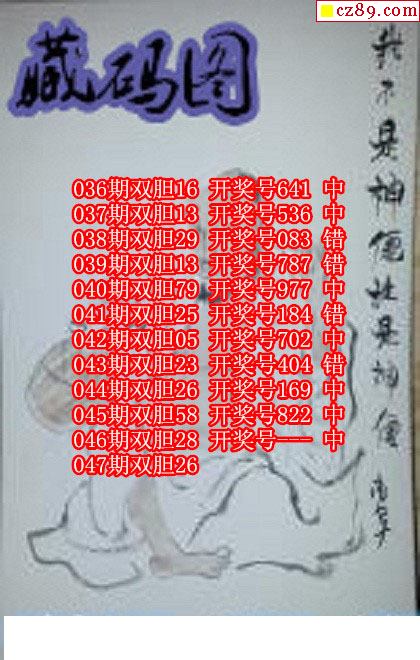 cz89.com
藏码图
036期双胆16 开奖号641 中
037期双胆13 开奖号536 中
038期双胆29 开奖号083 错
039期双胆13 开奖号787 错
040期双胆79 开奖号977 中
041期双胆25 开奖号184 错
042期双胆05 开奖号702 中
043期双胆23 开奖号404 错
044期双胆26 开奖号169 中
045期双胆58 开奖号822 中
046期双胆28 开奖号--- 中
047期双胆26
我不是神仙谁是神仙